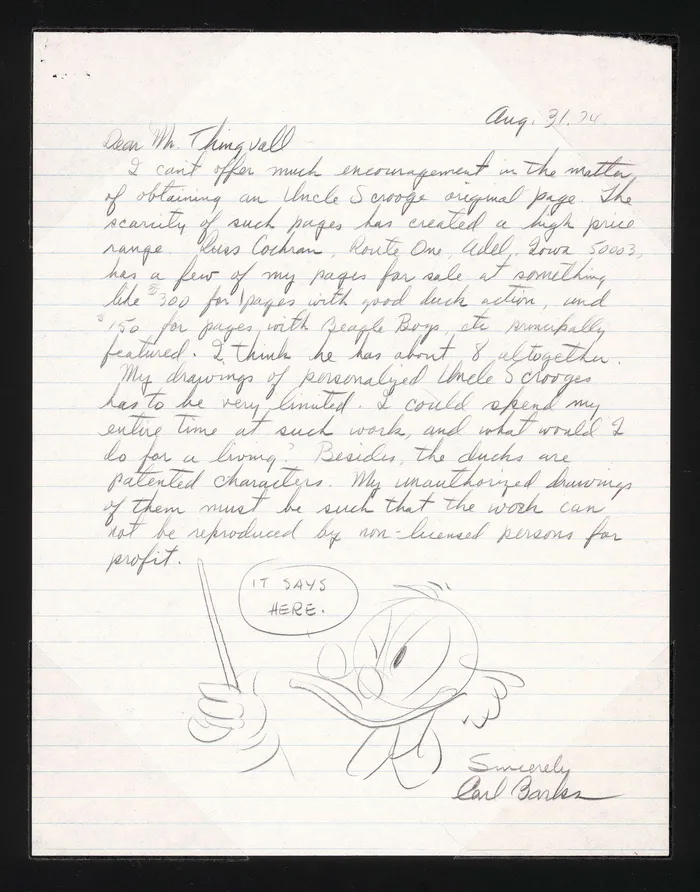 Aug. 31. 74
Dear Mr. Thingvall
I can't offer much encouragement in the matter
of obtaining an Uncle Scrooge original page. The
scarcity of such pages has created a high price
range. Russ Cochran, Route One, Adel, Iowa 50003,
has a few of my pages for sale at something
like $300 for pages with good duck action, and
$150 for pages with Beagle Boys, etc principally
featured. I think he has about 8 altogether.
My drawings of personalized Uncle Scrooges
has to be very limited. I could spend my
entire time at such work, and what would I
do for a living? Besides, the ducks are
patented characters. My unauthorized drawings
of them must be such that the work can
not be reproduced by non-licensed persons for
profit.
IT SAYS
HERE.
Sincerely
Carl Barks